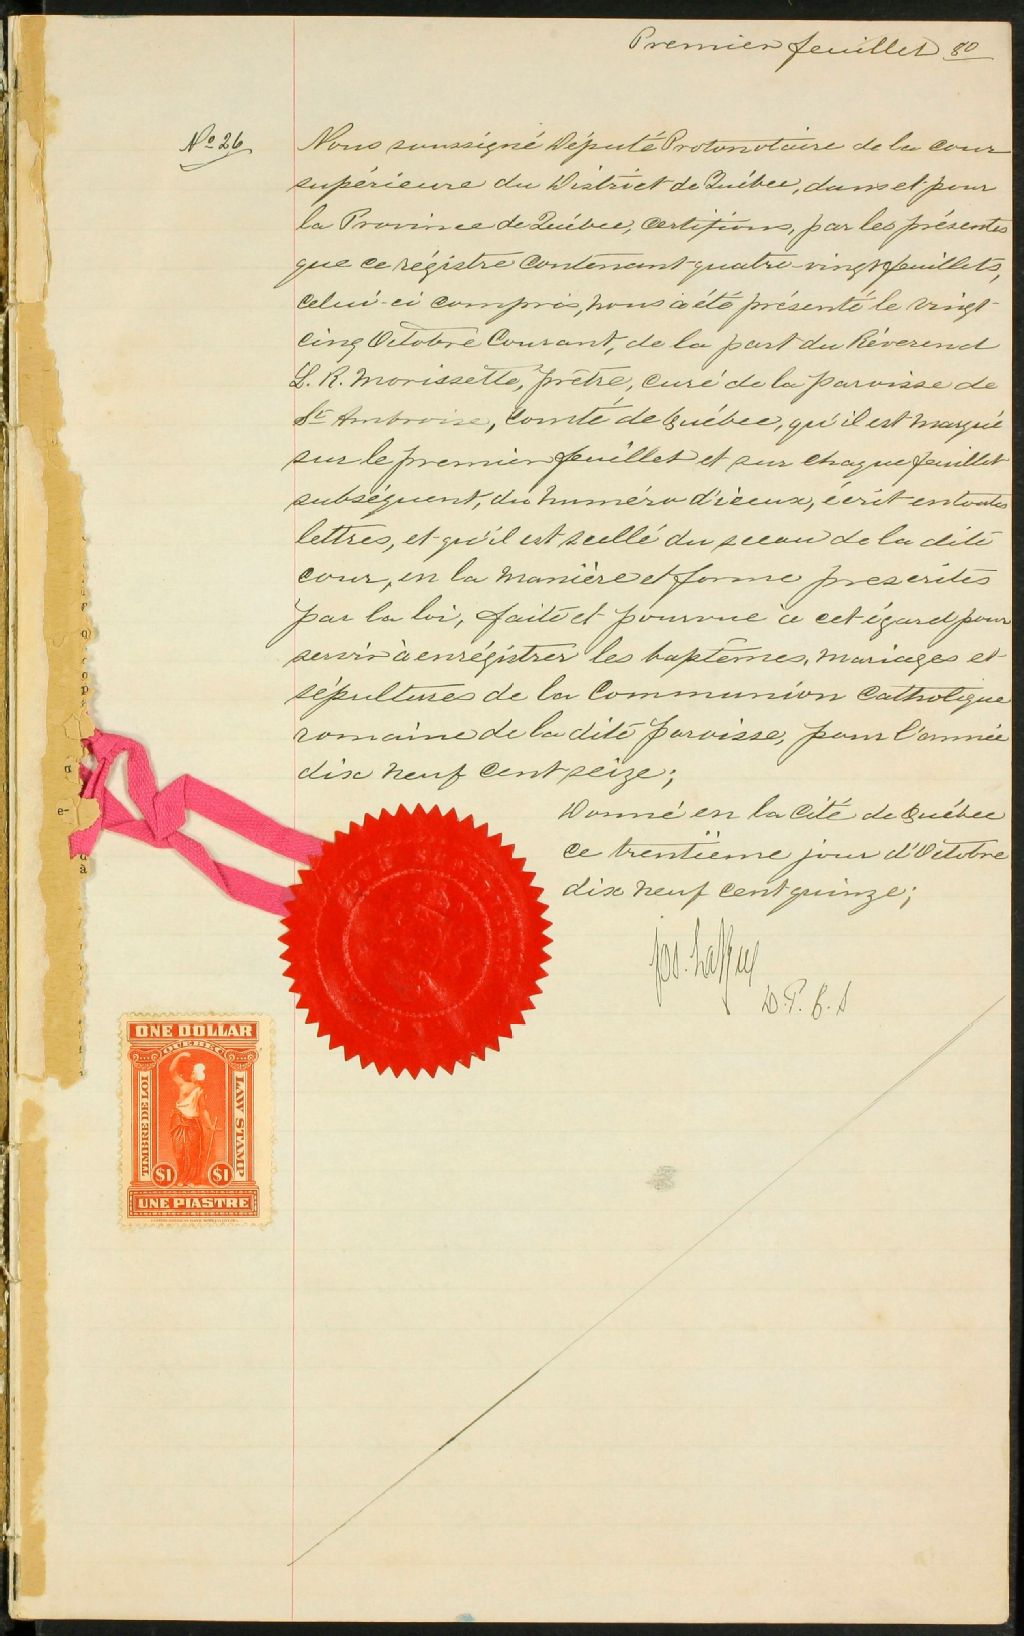 Premier feuillet 80
No 26
Nous soussigné Député Protonotaire de la cour
supérieure du District de Québec, dans et pour
la Province de Québec, certifions, par les présentes
que ce régistre contenant quatre-vingt feuillets,
celui-ci compris, nous a été présenté le vingt-
cinq Octobre Courant, de la part du Révérend
L. R. Morissette, prêtre, curé de la paroisse de
St Ambroise, Comté de Québec, qu'il est marqué
sur le premier feuillet et sur chaque feuillet
subséquent, du numéro d'iceux, écrit en toutes
lettres, et qu'il est scellé du sceau de la dite
cour, en la manière et forme prescrites
par la loi, faite et pourvue à cet égard pour
servir à enrégistrer les baptêmes, mariages et
sépultures de la Communion Catholique
romaine de la dite paroisse, pour l'année
dix neuf cent seize;
Donné en la Cité de Québec
ce trentième jour d'Octobre
dix neuf cent quinze;
D. P. C. S
ONE DOLLAR
QUEBEC
TIMBRE DE LOI
LAW STAMP
$1 $1
UNE PIASTRE